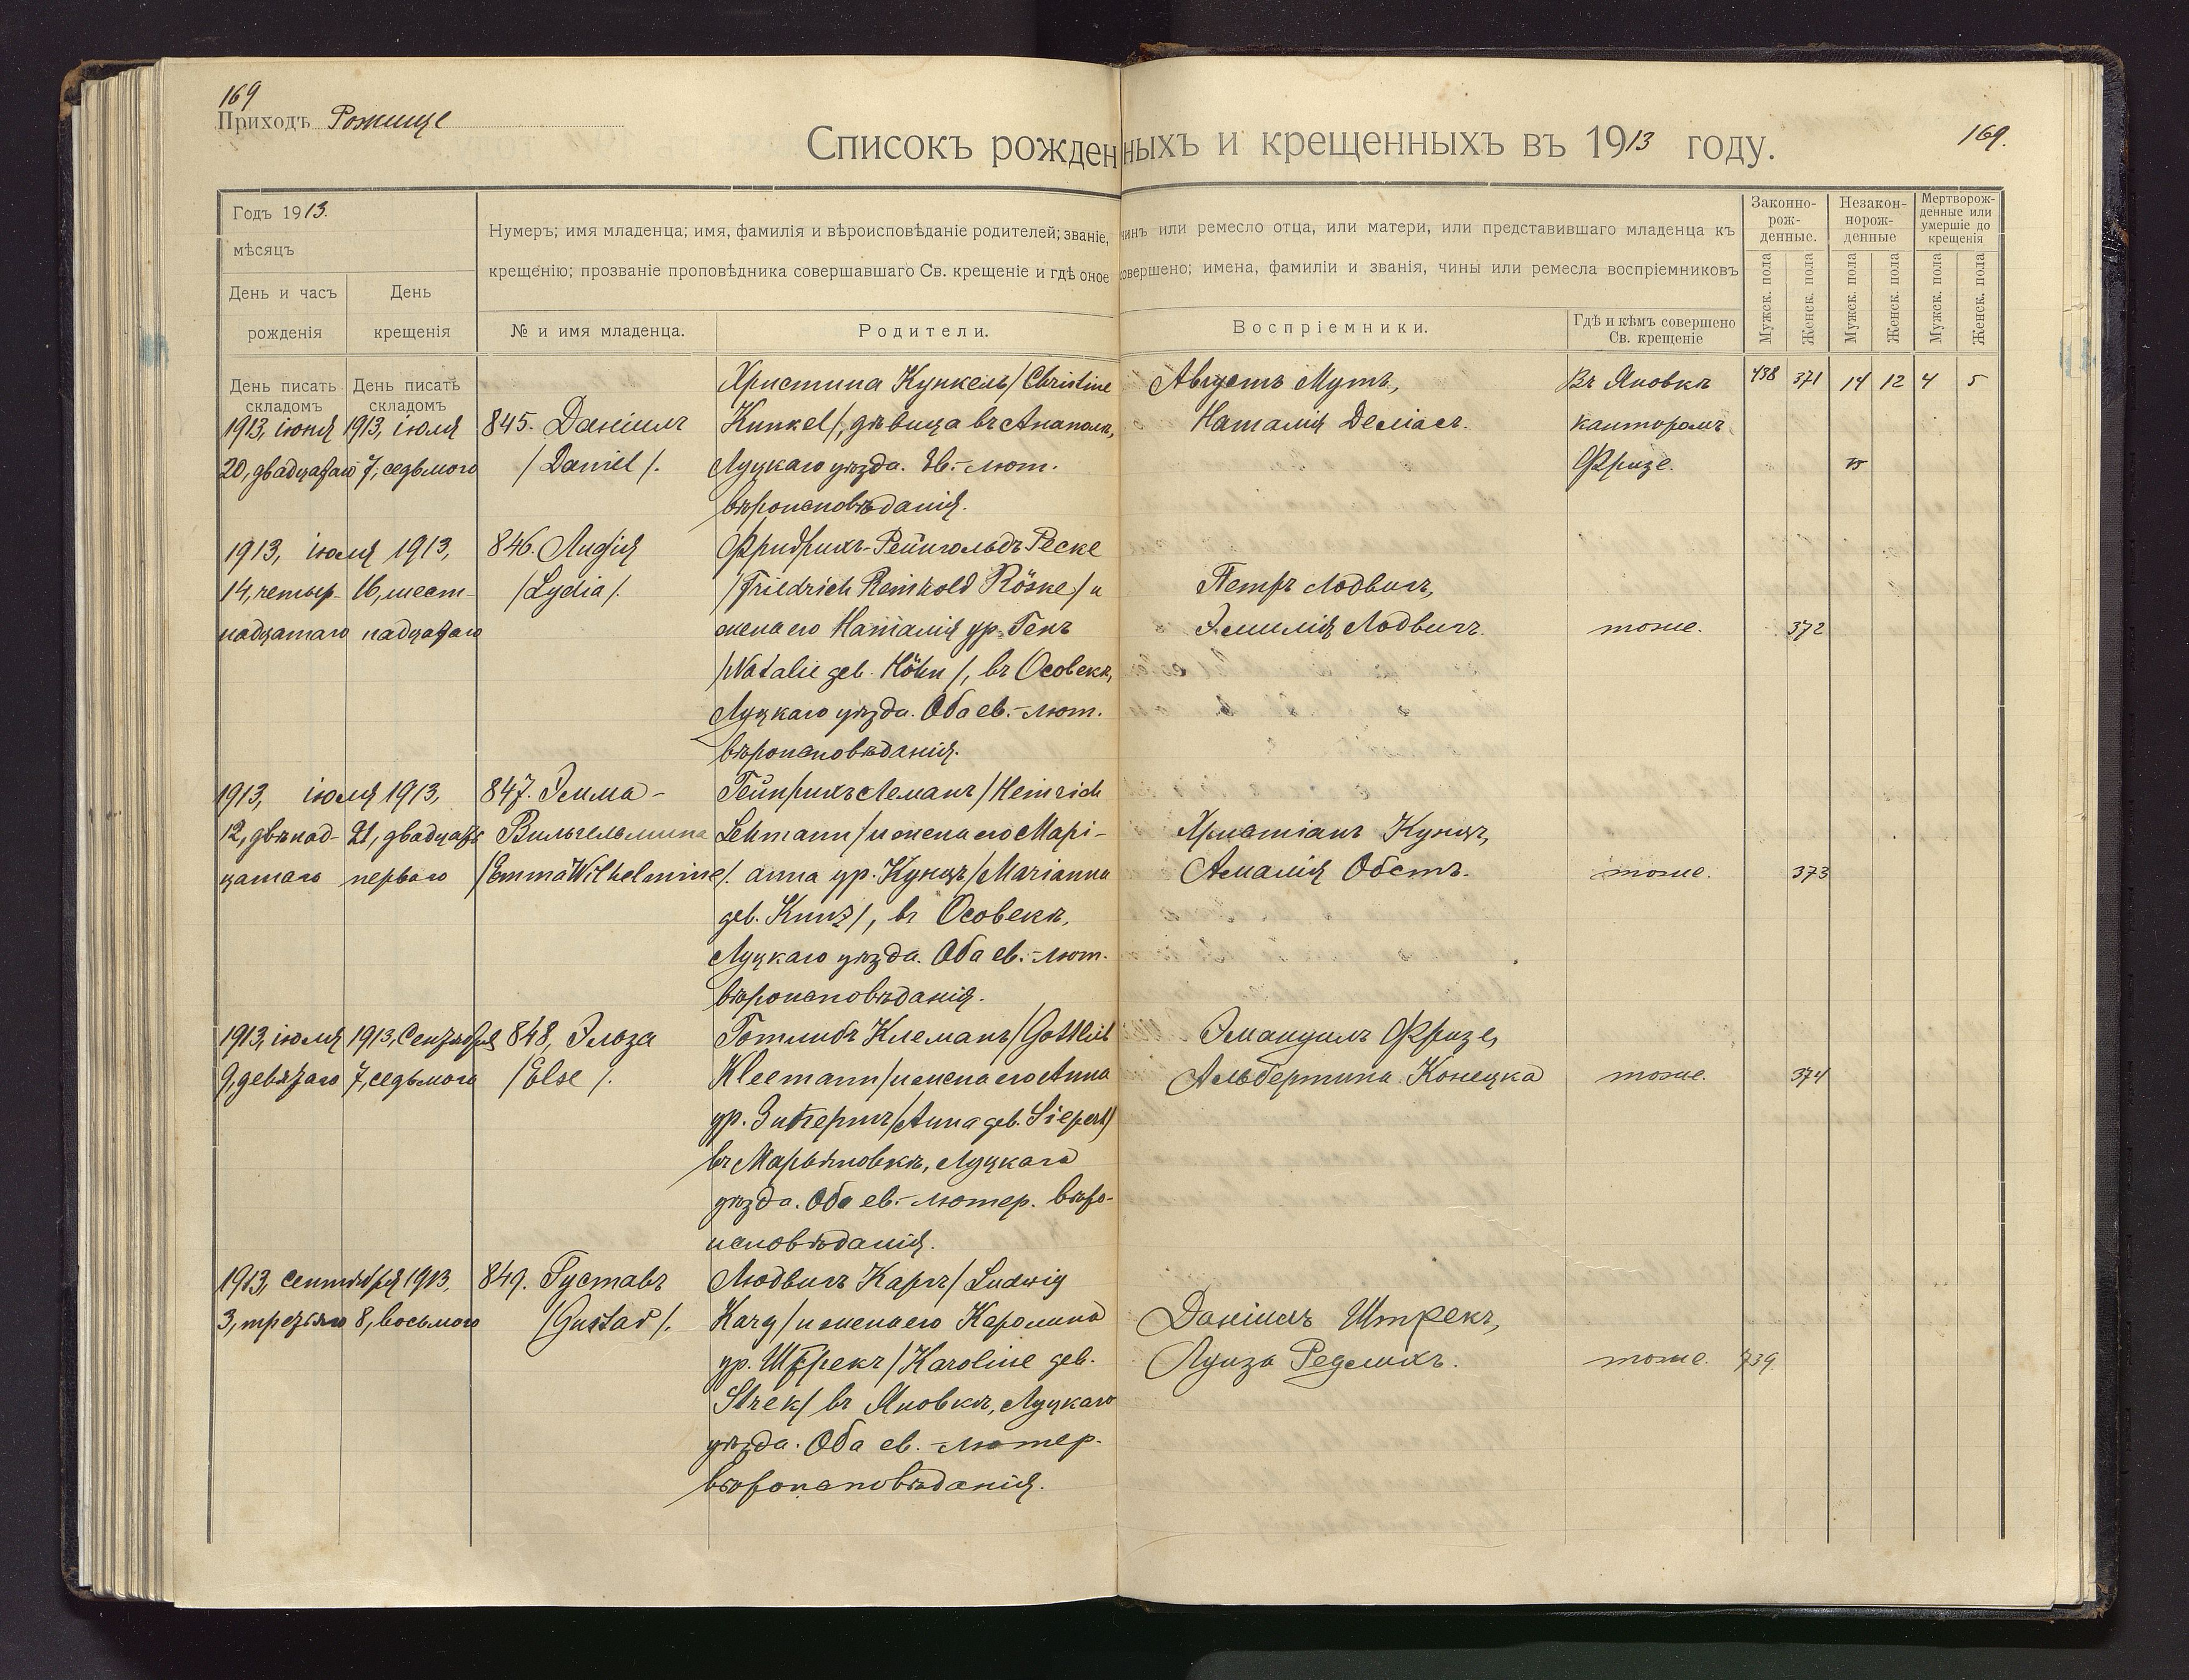 169
Приходъ Рожище
169.
Списокъ рожденныхъ и крещенныхъ въ 1913 году.
Годъ 1913.
мѣсяцъ
День и часъ рожденія
День крещенія
Нумеръ; имя младенца; имя, фамилія и вѣроисповѣданіе родителей; званіе, чинъ или ремесло отца, или матери, или представившаго младенца къ
крещенію; прозваніе проповѣдника совершавшаго Св. крещеніе и гдѣ оное совершено; имена, фамиліи и званія, чины или ремесла воспріемниковъ
№ и имя младенца.
Родители.
Воспріемники.
Гдѣ и кѣмъ совершено
Св. крещеніе
Законно-
рож-
денные.
Незакон-
норож-
денные
Мертворож-
денные или
умершіе до
крещенія
Мужск. пола
Женск. пола
Мужск. пола
Женск. пола
Мужск. пола
Женск. пола
День писать
складомъ
День писать
складомъ
438 371 14 12 4 5
1913, іюня
20, двадцатаго
1913, іюля
7, седьмого
845. Даніилъ
/Daniel/.
Христина Кункель/Christine
Kunkel/, дѣвица въ Анаполѣ,
Луцкаго уѣзда. Ев.-лют.
вѣроисповѣданія.
Августъ Мутъ,
Наталія Деліасъ.
Въ Яновкѣ
канторомъ
Фризе.
15
1913, іюля
14, четыр-
надцатаго
1913,
16, шест-
надцатаго
846. Лидія
/Lydia/.
Фридрихъ-Рейнгольдъ Реске
/Friedrich Reinhold Röske/ и
жена его Наталія ур. Генъ
/Natalie geb. Höhn/, въ Осовекѣ,
Луцкаго уѣзда. Оба ев.-лют.
вѣроисповѣданія.
Петръ Лодвигъ,
Эмилія Лодвигъ.
тоже.
372
1913, іюля
12, двѣнад-
цатаго
1913,
21, двадцать
перваго
847. Эмма-
Вильгельмина
/Emma Wilhelmine/.
Гейнрихъ Леманъ/Heinrich
Lehmann/ и жена его Марі-
анна ур. Кунцъ/Marianna
geb. Kunz/, въ Осовекѣ,
Луцкаго уѣзда. Оба ев.-лют.
вѣроисповѣданія.
Христіанъ Кунцъ,
Амалія Обстъ.
тоже.
373
1913, іюля
9, девятаго
1913, Сентября
7, седьмого
848. Эльза
/Else/.
Готлибъ Клеманъ/Gottlieb
Kleemann/ и жена его Анна
ур. Зипертъ/Anna geb. Siepert/
въ Марьяновкѣ, Луцкаго
уѣзда. Оба ев.-лютер. вѣро-
исповѣданія.
Эмануилъ Фризе,
Альбертина Конецка
тоже.
374
1913, сентября
3, третьяго
1913,
8, восьмого
849. Густавъ
/Gustav/.
Людвигъ Каргъ/Ludwig
Karg/ и жена его Каролина
ур. Штрекъ/Karoline geb.
Strek/ въ Яновкѣ, Луцкаго
уѣзда. Оба ев.-лютер.
вѣроисповѣданія.
Даніилъ Штрекъ,
Луиза Редлихъ.
тоже.
439